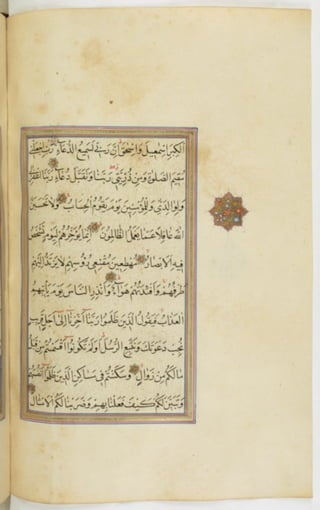 الكبر اسمعيل واسحق ان ربى لسميع الدعاء رب اجعلنى
مقيم الصلوة ومن ذريتى ربنا وتقبل دعاء ربنا اغفر لى
ولوالدى وللمؤمنين يوم يقوم الحساب ولا تحسبن
الله غافلا عما يعمل الظالمون انما يؤخرهم ليوم تشخص
فيه الابصار مهطعين مقنعى رؤسهم لا يرتد اليهم
طرفهم وافئدتهم هواء وانذر الناس يوم يأتيهم
العذاب فيقول الذين ظلموا ربنا اخرنا الى اجل قريب
نجب دعوتك ونتبع الرسل اولم تكونوا اقسمتم من قبل
ما لكم من زوال وسكنتم فى مساكن الذين ظلموا انفسهم
وتبين لكم كيف فعلنا بهم وضربنا لكم الامثال